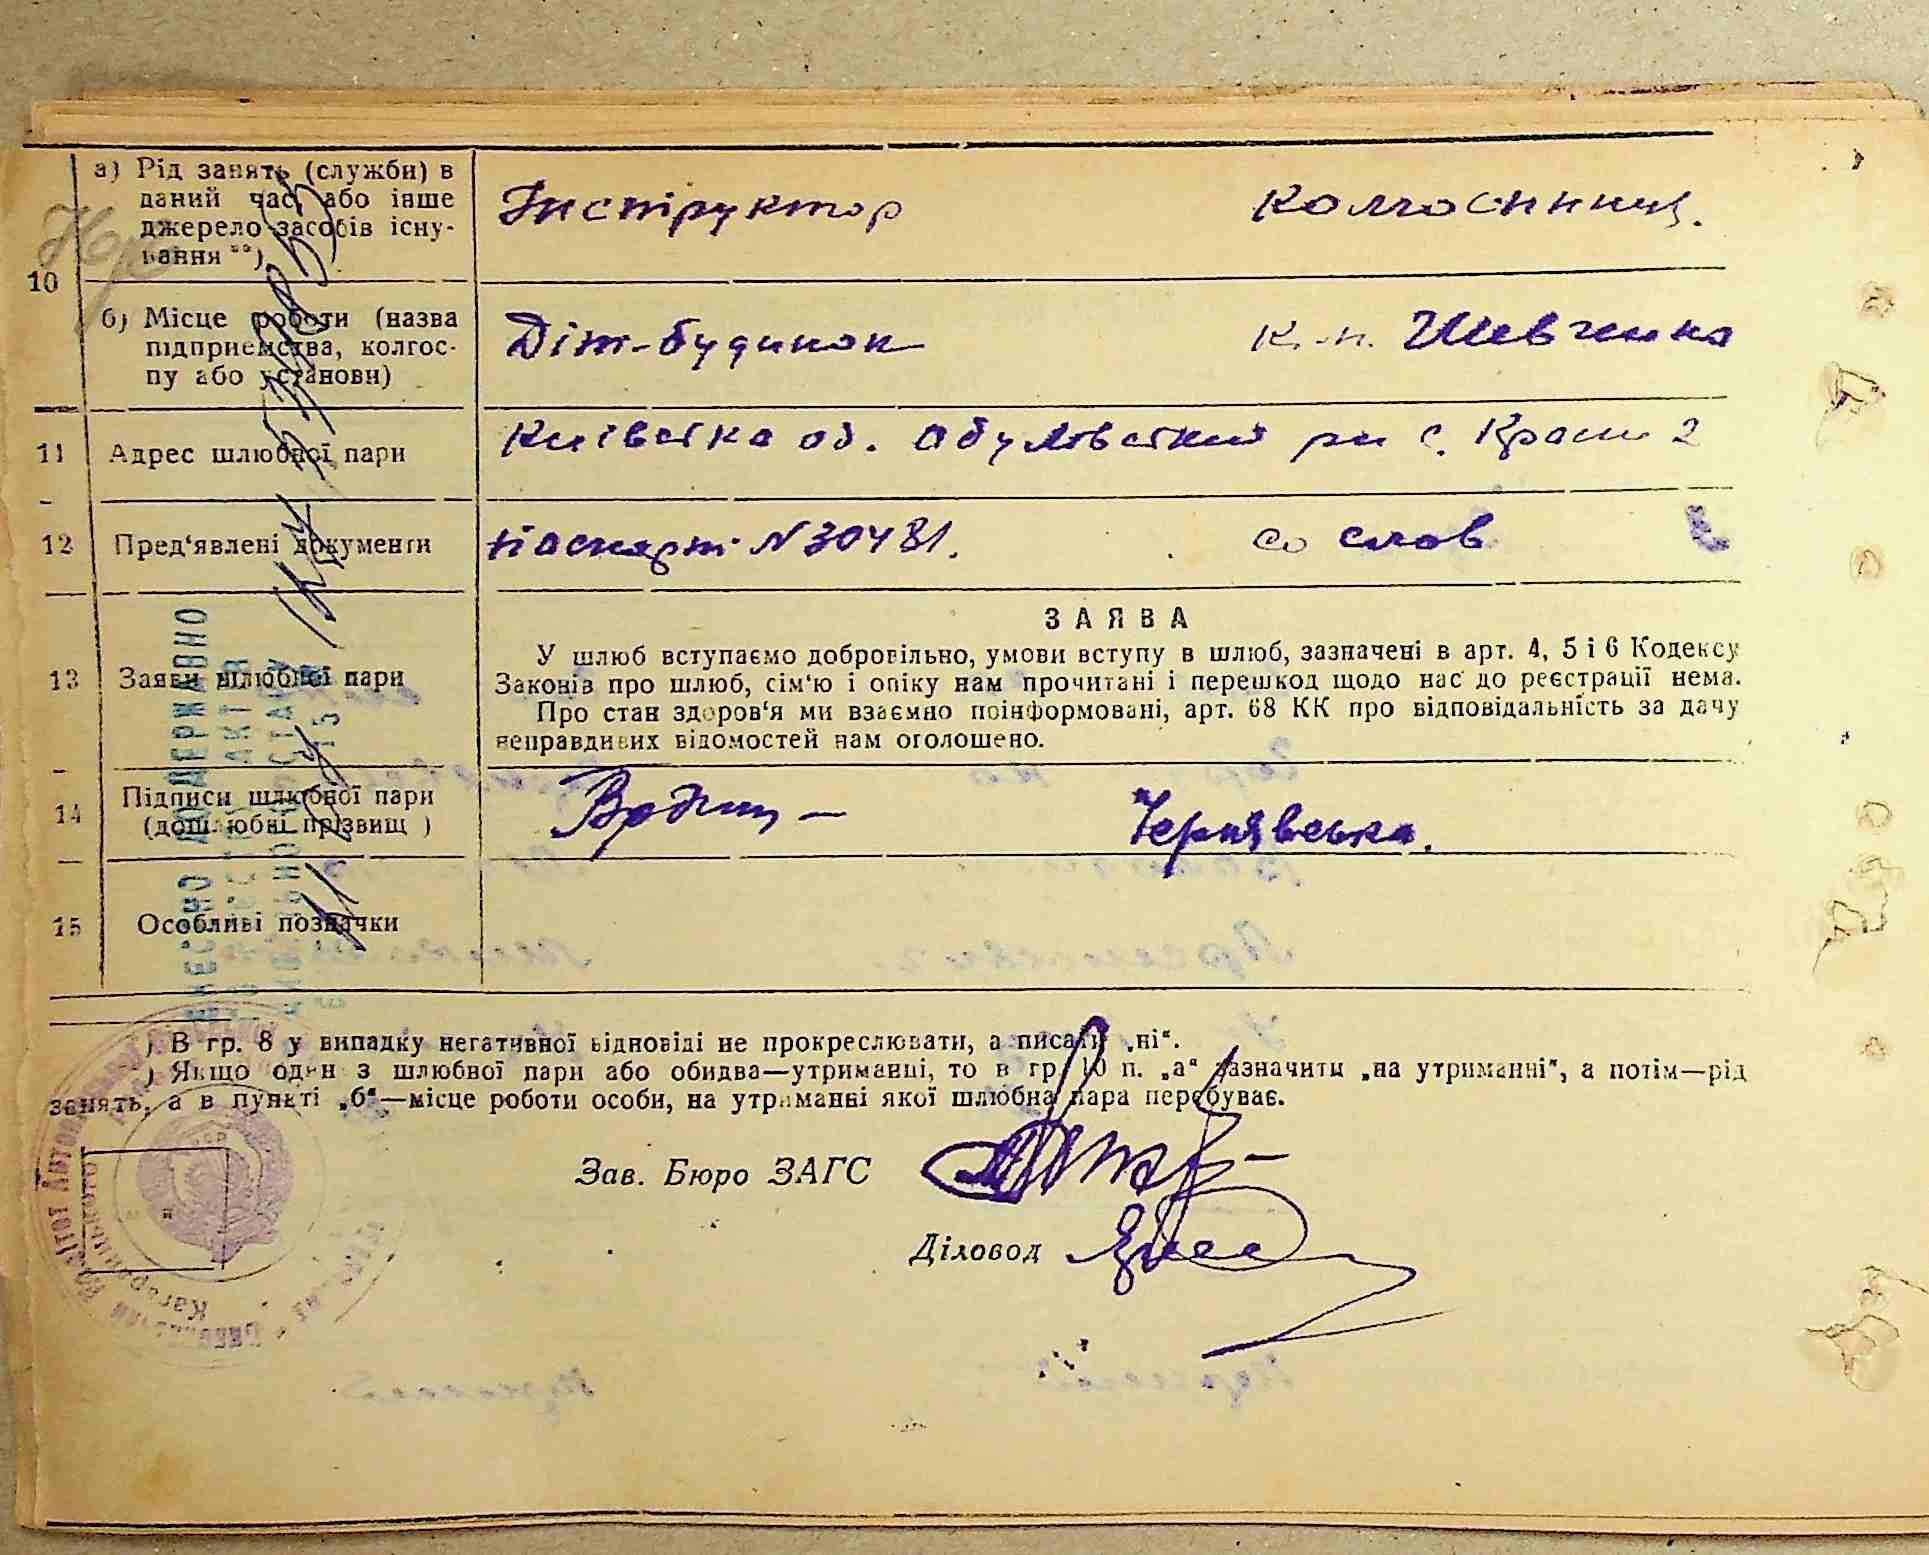 10
а) Рід занять (служби) в
даний час або інше
джерело засобів існу-
вання **)
Інструктор
колгоспниц.
б) Місце роботи (назва
підприємства, колгос-
пу або установи)
Діт-будинок
к-п. Шевченка
11 Адрес шлюбної пари
Київська об. Обухівський рн с. Красне 2
12 Пред‘явлені документи
паспорт N 30481.
со слов
13 Заяви шлюбної пари
ЗАЯВА
У шлюб вступаємо добровільно, умови вступу в шлюб, зазначені в арт. 4, 5 і 6 Кодексу
Законів про шлюб, сім‘ю і опіку нам прочитані і перешкод щодо нас до реєстрації нема.
Про стан здоров‘я ми взаємно поінформовані, арт. 68 КК про відповідальність за дачу
неправдивих відомостей нам оголошено.
14 Підписи шлюбної пари
(дошлюбні прізвищ )
Чернявська.
15 Особливі позначки
) В гр. 8 у випадку негативної відповіді не прокреслювати, а писати „ні“.
) Якщо один з шлюбної пари або обидва—утриманці, то в гр. 10 п. „а“ зазначити „на утриманні“, а потім—рід
занять, а в пункті „б“—місце роботи особи, на утриманні якої шлюбна пара перебуває.
Зав. Бюро ЗАГС
Діловод